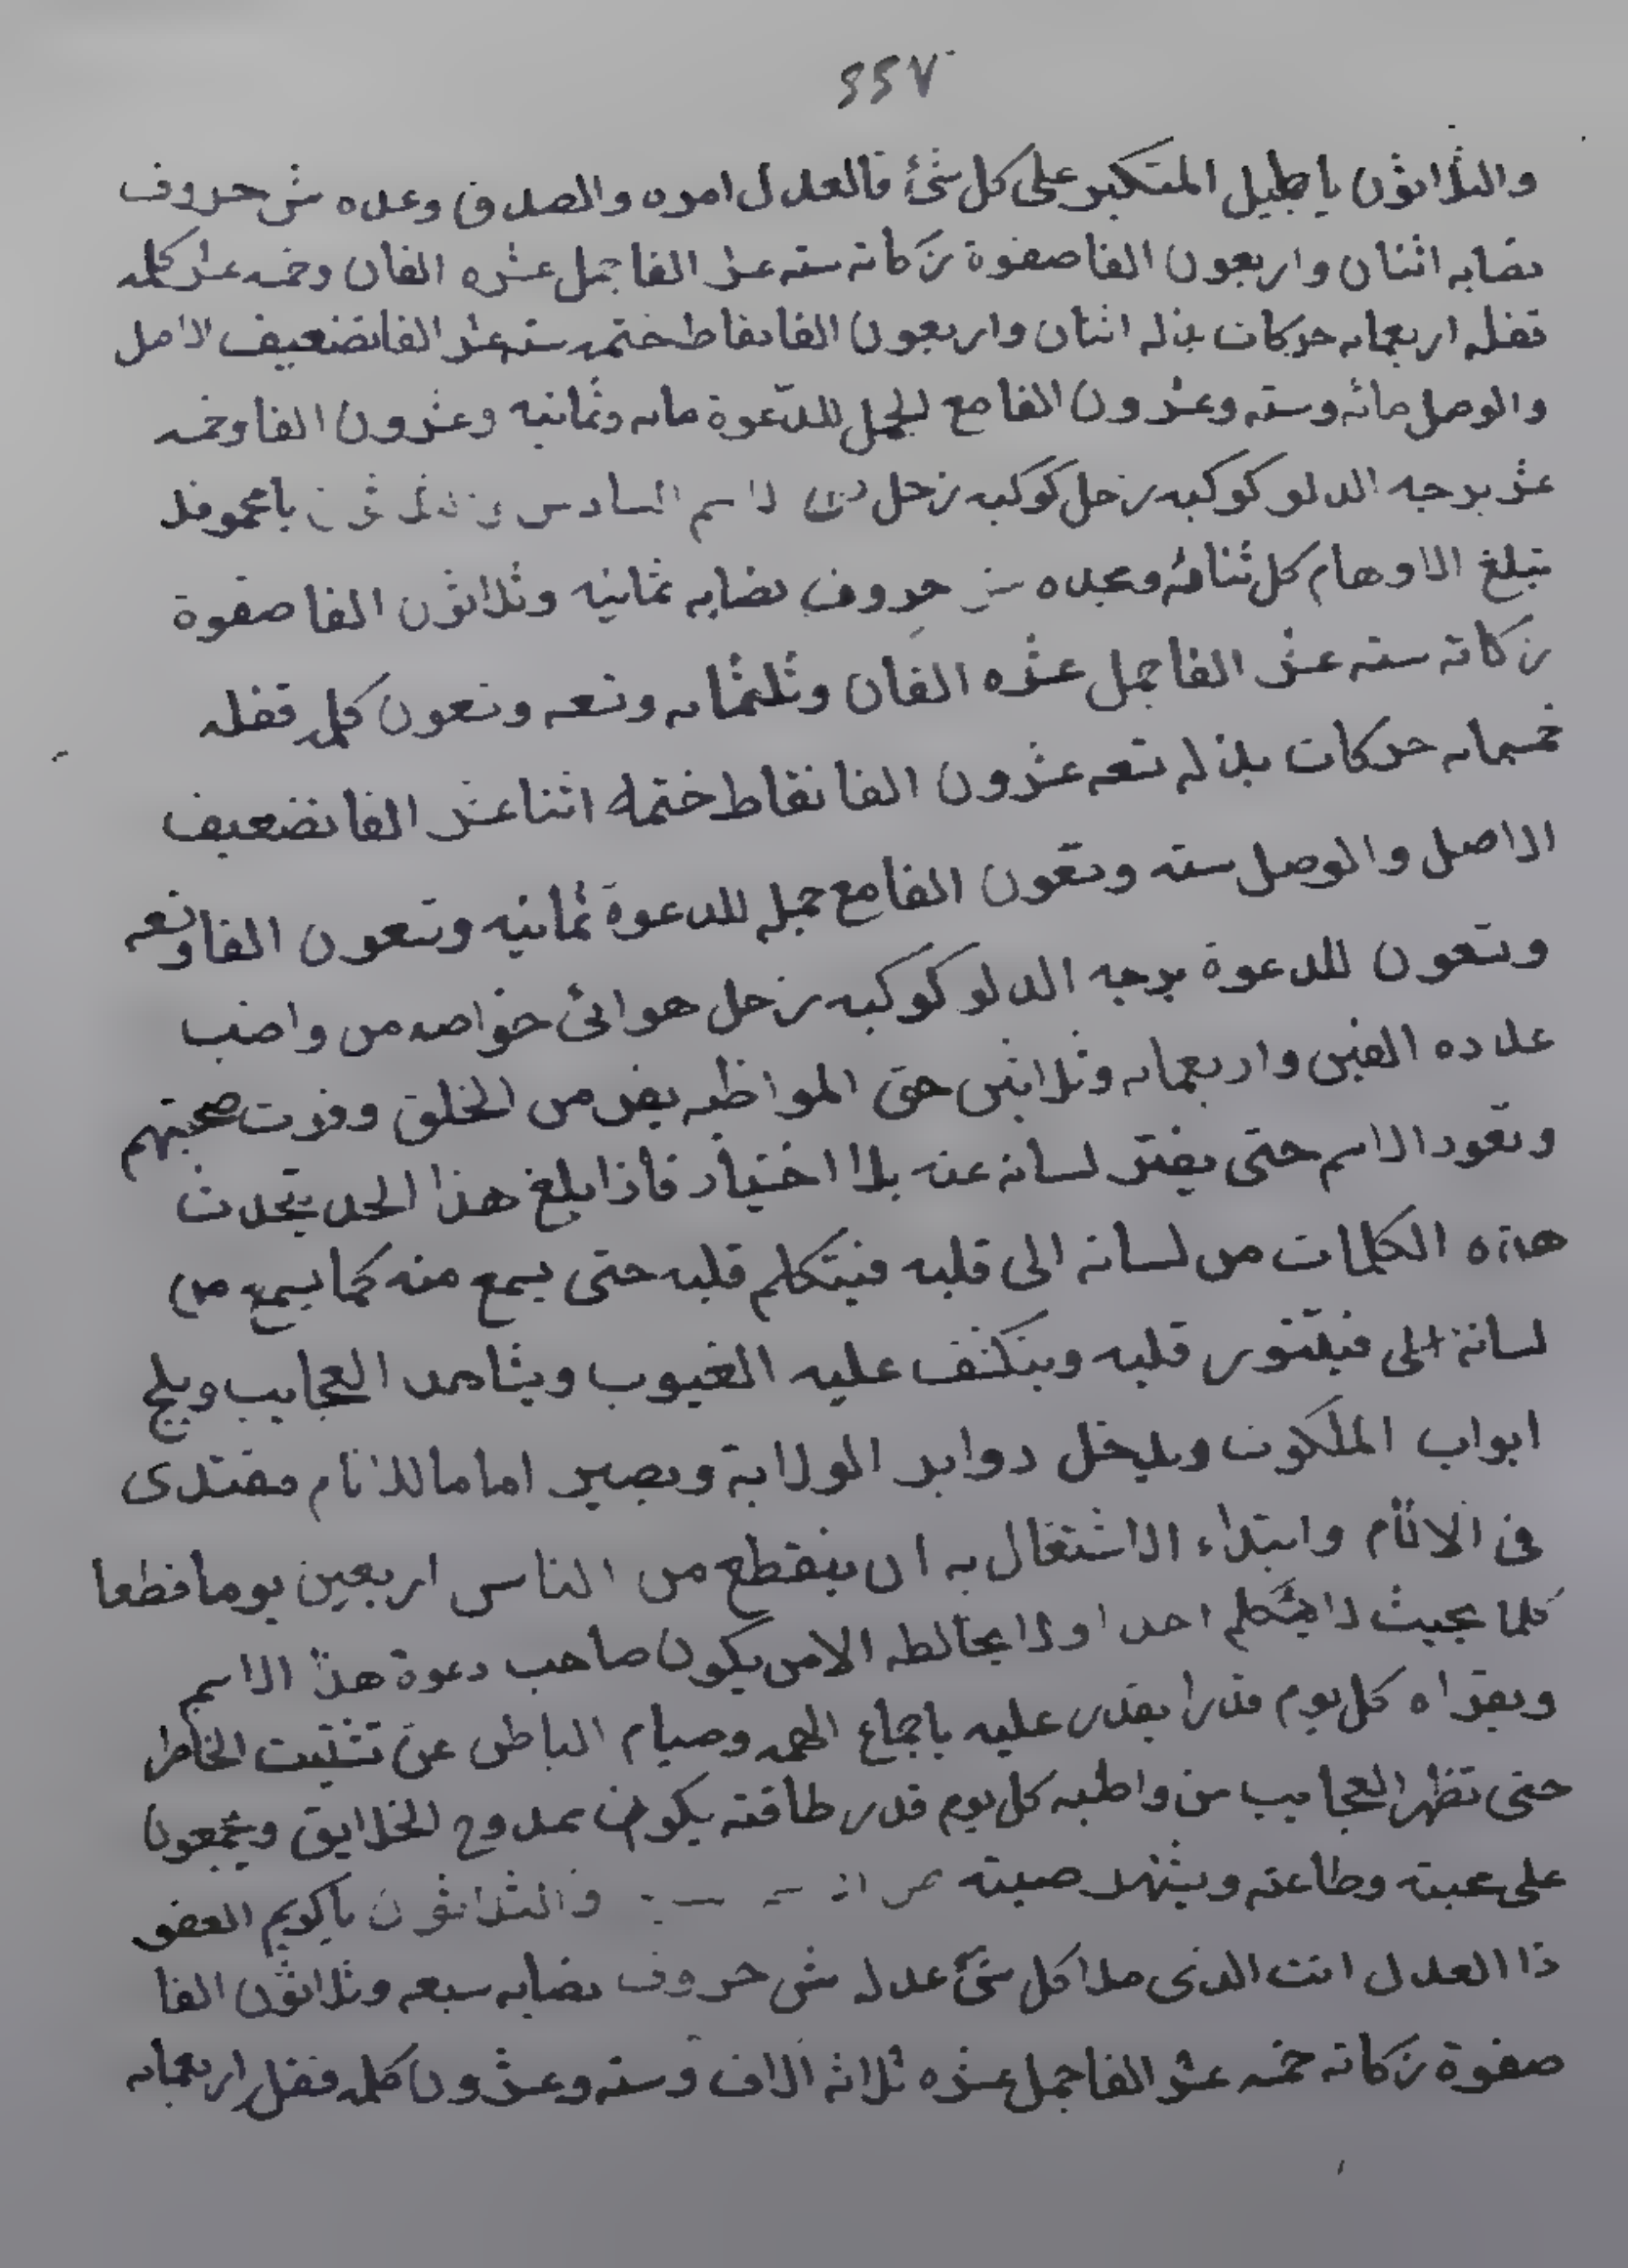 ٢٢٧
والثلاثون يا جليل المتكبر على كل شئ فالعدل امره والصدق وعده حروف
نصابه اثنان واربعون الفا صفوة زكاته سته عشر الفا جمل عشره الفان وخمسه عشر كلمه
قفله اربعمايه حركات بذله اثنان واربعون الفا نقاط ختمه سته عشر الفا تضعيف الاصل
والوصل مائه وسته وعشرون الفا مع الجمل للدعوة مايه وثمانيه وعشرون الفا وخمسه
عشر برجه الدلو كوكبه زحل كوكبه زحل الاسم السادس والثلاثون يا محمود فلا
تبلغ الاوهام كل ثنائه ومجده حروف نصابه ثمانيه وثلاثون الفا صفوة
زكاته سته عشر الفا جمل عشره الفان وثلثمايه وتسعه وتسعون كلمه قفله
خمسمايه حركات بذله تسعه عشرون الفا نقاط ختمه اثنا عشر الفا تضعيف
الاصل والوصل سته وتسعون الفا مع جمله للدعوة ثمانيه وتسعون الفا وتسعه
وتسعون للدعوة برجه الدلو كوكبه زحل هوائى خواصه من واضب
عدده الفين واربعمايه وثلاثين حق المواظبه يفر من الخلق ووزت صحبتهم
وتعود الاسم حتى يفتر لسانه عنه بلا اختيار فاذا بلغ هذا الحد يتحدث
هذه الكلمات من لسانه الى قلبه فيتكلم قلبه حتى يسمع منه كما يسمع من
لسانه الى فيتنور قلبه وينكشف عليه الغيوب ويشاهد العجايب ويلج
ابواب الملكوت ويدخل دواير الولاية ويصير اماما للانام مقتدى
فى الانام وابتداء الاشتغال به ان ينقطع من الناس اربعين يوما قطعا
كلما بحيث لا يتكلم احدا ولا يخالطه الا من يكون صاحب دعوة هذا الاسم
ويقراه كل يوم قدرا يقدر عليه باجماع الهمه وصيام الباطن عن تشتيت الخاطر
حتى تظهر العجايب من واظبه كل يوم قدر طاقته يكون ممدوح الخلايق ويجمعون
على محبته وطاعته ويشتهر صيته والثلاثون يا كريم العفو
ذا العدل انت الذى ملا كل شئ عدله حروف نصابه سبعه وثلاثون الفا
صفوة زكاته خمسه عشر الفا جمل عشره ثلاثه الاف وسته وعشرون كلمه قفل اربعمايه